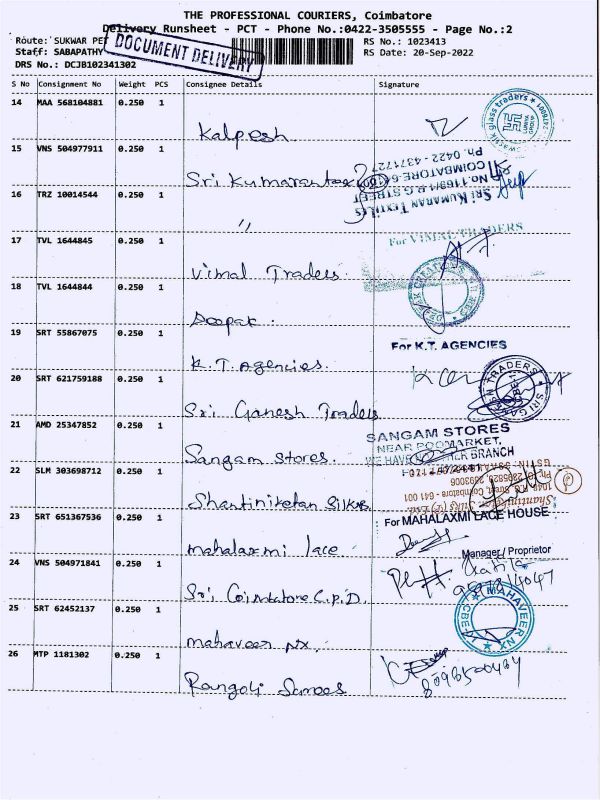 THE PROFESSIONAL COURIERS, Coimbatore
Delivery Runsheet - PCT - Phone No.:0422-3505555 - Page No.:2
Route: SUKWAR PET
RS No.: 1023413
DOCUMENT DELIVERY
Staff: SABAPATHY
RS Date: 20-Sep-2022
DRS No.: DCJB102341302
S No Consignment No Weight PCS Consignee Details Signature
14 MAA 568104881 0.250 1
Kalpesh
glass traders
15 VNS 504977911 0.250 1
Sri Kumaran tex
Ph. 0422 - 4371727
SRI KUMARAN TEXTILES
16 TRZ 10014544 0.250 1
"
17 TVL 1644845 0.250 1
Vimal Traders
For VIMAL TRADERS
18 TVL 1644844 0.250 1
Deepak
19 SRT 55867075 0.250 1
K.T. Agencies.
For K.T. AGENCIES
20 SRT 621759188 0.250 1
Sri Ganesh Traders
21 AMD 25347852 0.250 1
Sangam Stores.
SANGAM STORES
NEAR POOMARKET,
WE HAVE BRANCH
22 SLM 303698712 0.250 1
Shantiniketan Silks
Coimbatore - 641 001
23 SRT 651367536 0.250 1
mahalaxmi lace
For MAHALAXMI LACE HOUSE
Manager / Proprietor
24 VNS 504971841 0.250 1
Sri Coimbatore C.P.D.
25 SRT 62452137 0.250 1
mahaveer nx
MAHAVEER NX
CBE
26 MTP 1181302 0.250 1
Rangoli Sarees